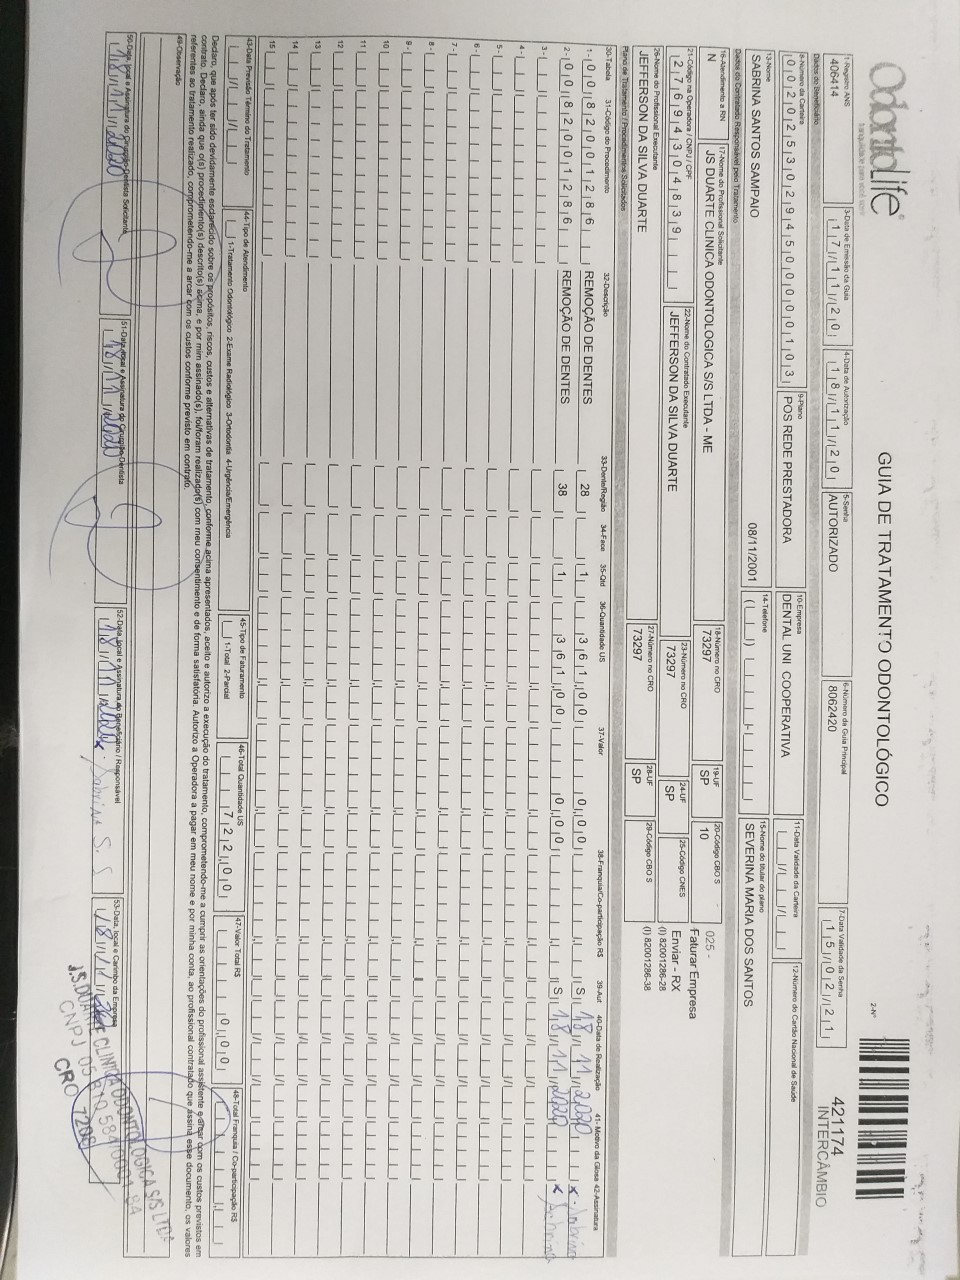 OdontoLife®
tranquilidade para você sorrir
GUIA DE TRATAMENTO ODONTOLÓGICO
2-Nº
421174
INTERCÂMBIO
1-Registro ANS
406414
3-Data de Emissão da Guia
17/11/20
4-Data de Autorização
18/11/20
5-Senha
AUTORIZADO
6-Número da Guia Principal
8062420
7-Data Validade da Senha
15/02/21
Dados do Beneficiário
8-Número da Carteira
00202530294500000103
9-Plano
POS REDE PRESTADORA
10-Empresa
DENTAL UNI COOPERATIVA
11-Data Validade da Carteira
12-Número do Cartão Nacional de Saúde
13-Nome
SABRINA SANTOS SAMPAIO
08/11/2001
14-Telefone
15-Nome do titular do plano
SEVERINA MARIA DOS SANTOS
Dados do Contratado Responsável pelo Tratamento
16-Atendimento a RN
N
17-Nome do Profissional Solicitante
JS DUARTE CLINICA ODONTOLOGICA S/S LTDA - ME
18-Número no CRO
73297
19-UF
SP
20-Código CBO S
10
025 -
Faturar Empresa
Enviar - RX
(I) 82001286-28
(I) 82001286-38
21-Código na Operadora / CNPJ / CPF
27694304839
22-Nome do Contratado Executante
JEFFERSON DA SILVA DUARTE
23-Número no CRO
73297
24-UF
SP
25-Código CNES
26-Nome do Profissional Executante
JEFFERSON DA SILVA DUARTE
27-Número no CRO
73297
28-UF
SP
29-Código CBO S
Plano de Tratamento / Procedimentos Solicitados
30-Tabela 31-Código do Procedimento 32-Descrição 33-Dente/Região 34-Face 35-Qtd 36-Quantidade US 37-Valor 38-Franquia/Co-participação R$ 39-Aut 40-Data de Realização 41-Motivo da Glosa 42-Assinatura
1- 00 82001286 REMOÇÃO DE DENTES 28 1 361,00 0,00 S 18/11/2020 x Sabrina
2- 00 82001286 REMOÇÃO DE DENTES 38 1 361,00 0,00 S 18/11/2020 x Sabrina
3-
4-
5-
6-
7-
8-
9-
10
11
12
13
14
15
43-Data Previsão Término do Tratamento
44-Tipo de Atendimento
1-Tratamento Odontológico 2-Exame Radiológico 3-Ortodontia 4-Urgência/Emergência
45-Tipo de Faturamento
1-Total 2-Parcial
46-Total Quantidade US
722,00
47-Valor Total R$
0,00
48-Total Franquia / Co-participação R$
Declaro, que após ter sido devidamente esclarecido sobre os propósitos, riscos, custos e alternativas de tratamento, conforme acima apresentados, aceito e autorizo a execução do tratamento, comprometendo-me a cumprir as orientações do profissional assistente e arcar com os custos previstos em
contrato. Declaro, ainda que o(s) procedimento(s) descrito(s) acima, e por mim assinado(s), foi/foram realizado(s) com meu consentimento e de forma satisfatória. Autorizo a Operadora a pagar em meu nome e por minha conta, ao profissional contratado que assina esse documento, os valores
referentes ao tratamento realizado, comprometendo-me a arcar com os custos conforme previsto em contrato.
49-Observação
50-Data, local e Assinatura do Cirurgião-Dentista Solicitante
18/11/2020
51-Data, local e Assinatura do Cirurgião-Dentista
18/11/2020
52-Data, local e Assinatura do Beneficiário / Responsável
18/11/2020 x Sabrina S. S
53-Data, local e Carimbo da Empresa
18/11/
J.S.DUARTE CLINICA ODONTOLOGICA S/S LTDA
CNPJ
CRO